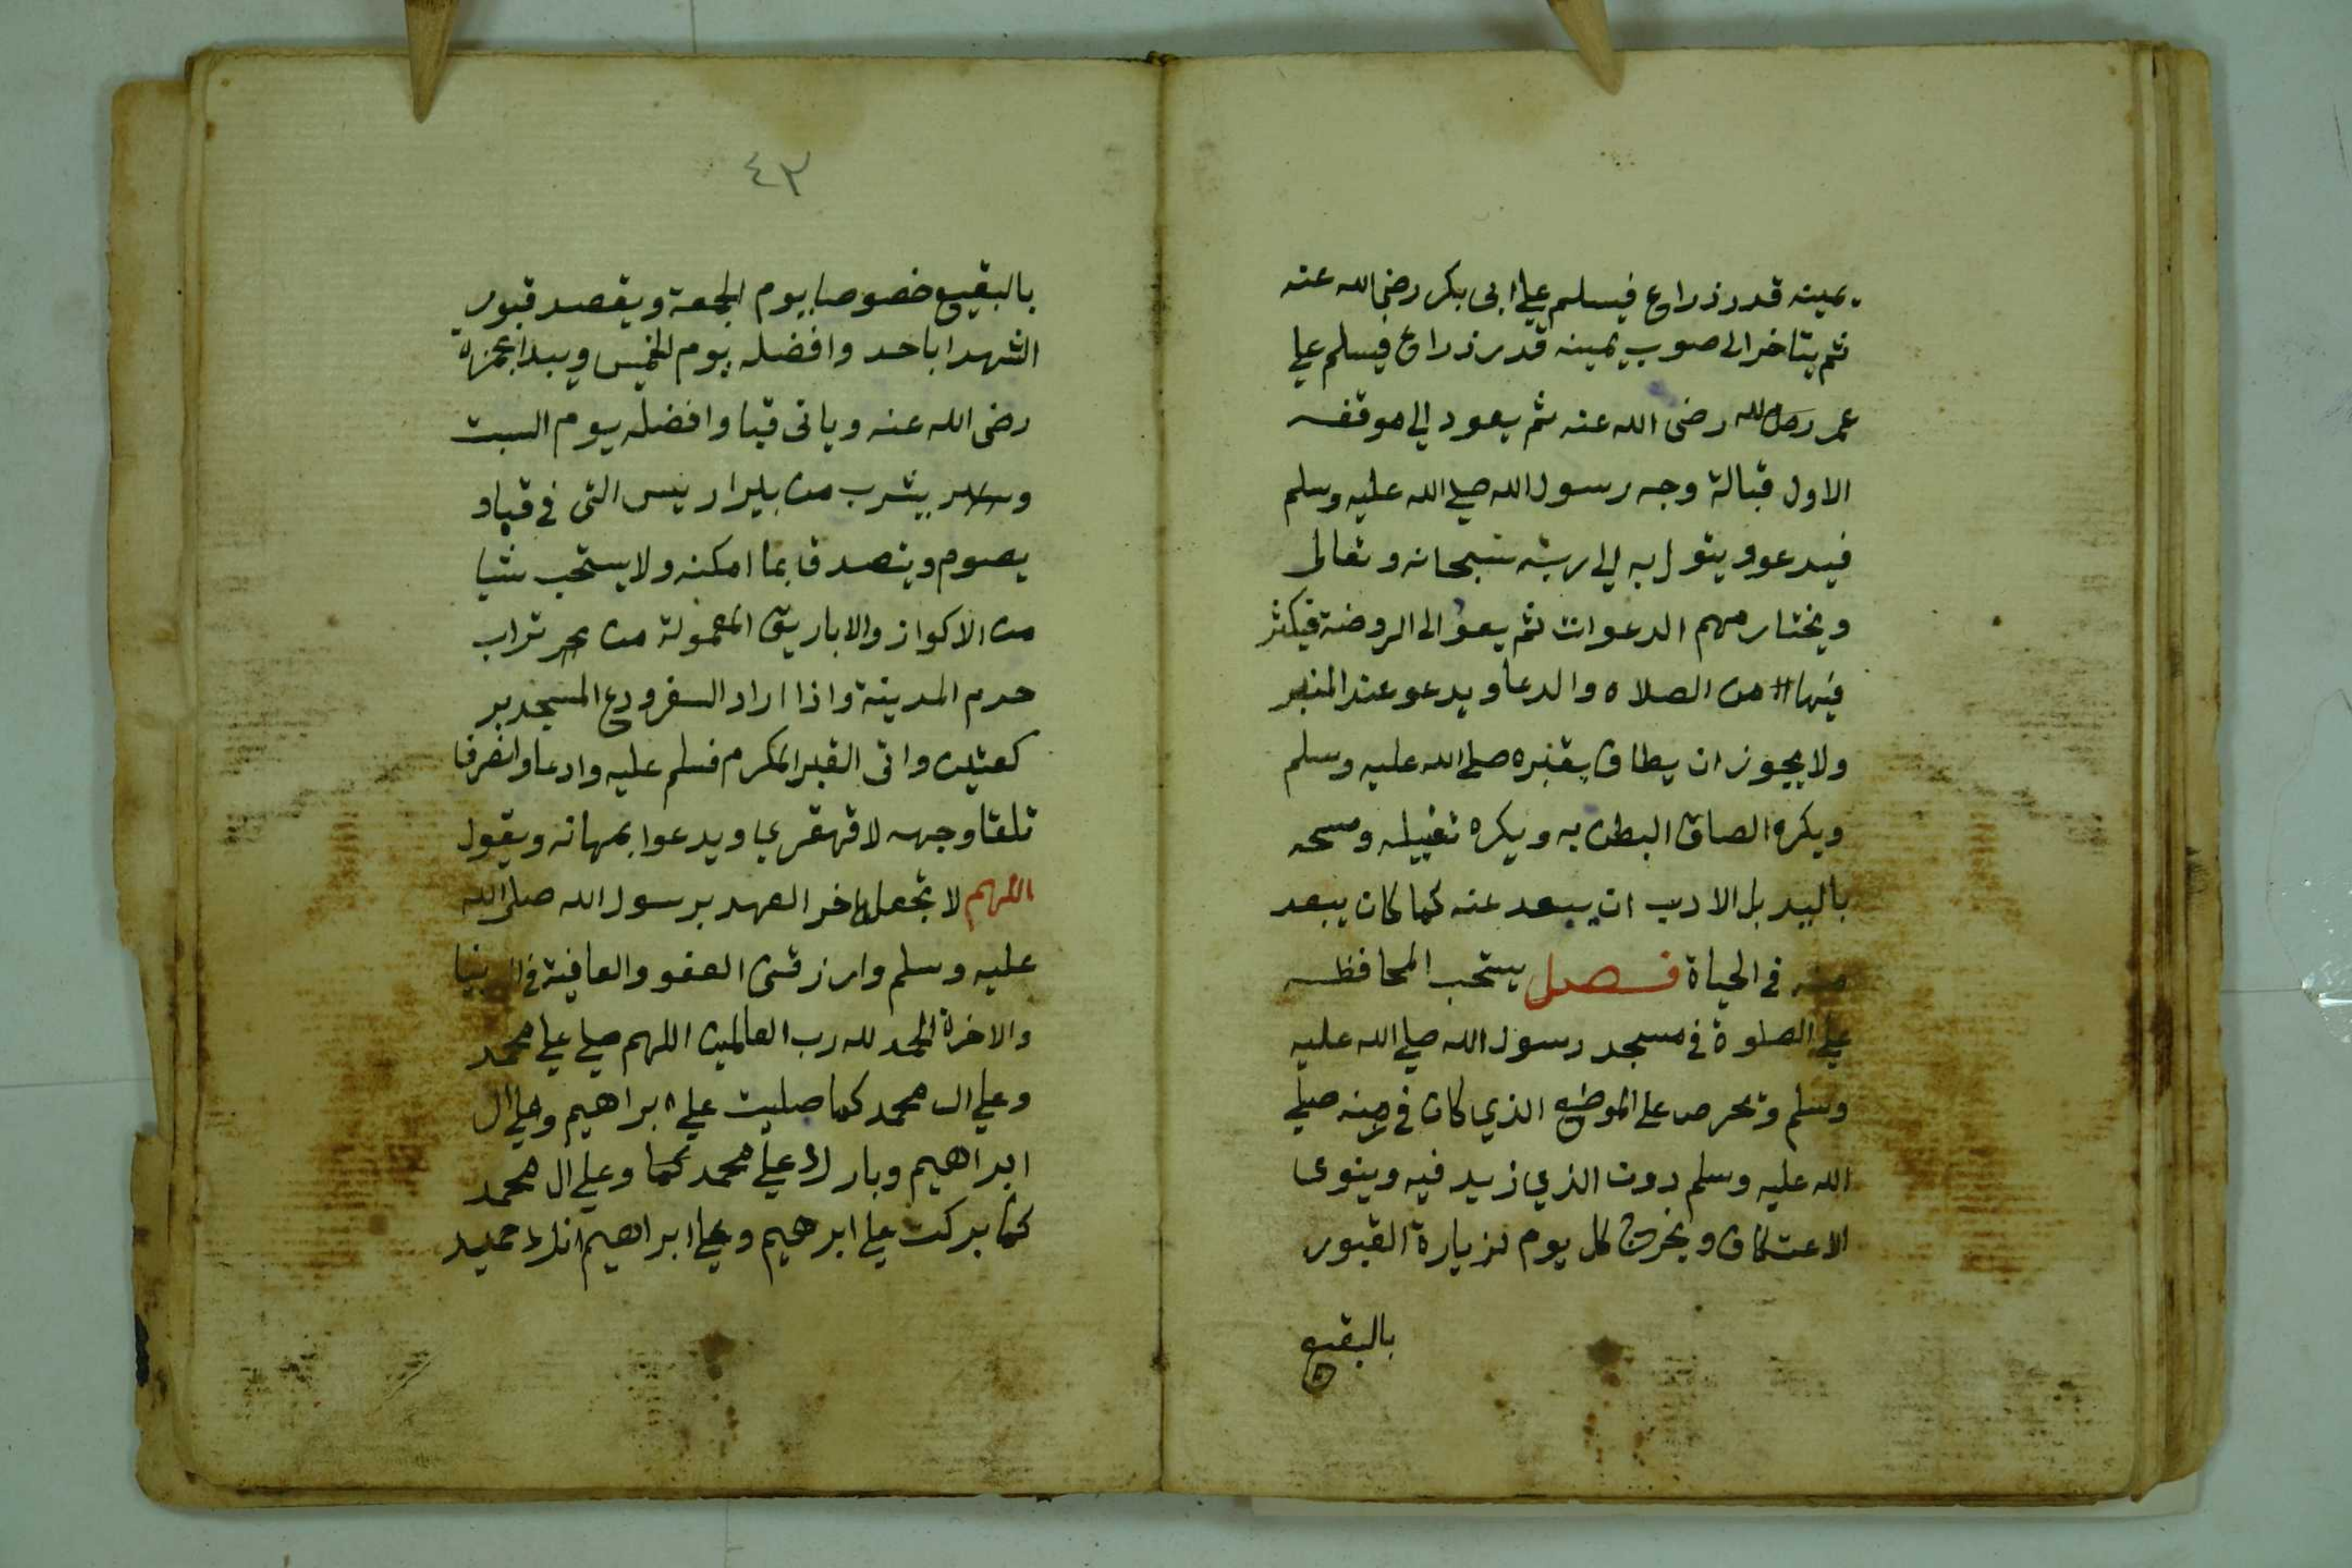 يمينه قدر ذراع فيسلم علي ابى بكر رضى الله عنه
ثم يتاخر الى صوب يمينه قدر ذراع فيسلم علي
عمر رضى الله عنه ثم يعود الي موقفه
الاول قبالة وجه رسول الله صلي الله عليه وسلم
فيدعو ويتول به الي ربه سبحانه وتعالى
ويختار مهم الدعوات ثم يعو الى الروضة فيكثر
فيها من الصلاه والدعا ويدعو عند المنبر
ولا يجوز ان يطاف بقبره صلى الله عليه وسلم
ويكره الصاق البطن به ويكره تقبيله ومسحه
باليد بل الادب ان يبعد عنه كما كان يبعد
منه في الحياة فصل يستحب المحافظه
علي الصلوة في مسجد رسول الله صلي الله عليه
وسلم وتحرص على الموضع الذي كان في صلي
الله عليه وسلم دون الذي زيد فيه وينوى
الاعتكاف ويخرج كل يوم لزيارة القبور
بالبقيع
٤٣
بالبقيع خصوصا يوم الجمعة ويقصد قبور
الشهدا باحد وافضله يوم الخميس ويبدا بحمزة
رضى الله عنه وياتى قبا وافضله يوم السبت
يشرب من بير اريس التى في قبا و
يصوم ويتصدق بما امكنه ولا يستحب شيا
من الاكواز والاباريق المعمولة من تراب
حرم المدينة واذا اراد السفر ودع المسجد بر
كعتين واتى القبر المكرم فسلم عليه وادعا وانصرفا
تلقا وجهه لا قهقري ويدعوا بمهاته ويقول
اللهم لا تجعل اخر العهد برسول الله صلى الله
عليه وسلم وارزقنى العفو والعافية في الدنيا
والاخرة الحمد لله رب العالمين اللهم صلي علي محمد
وعلي ال محمد كما صليت علي ابراهيم وعلي ال
ابراهيم وبارك علي محمد كما وعلي ال محمد
كما بركت علي ابرهيم وعلي ابراهيم انك حميد